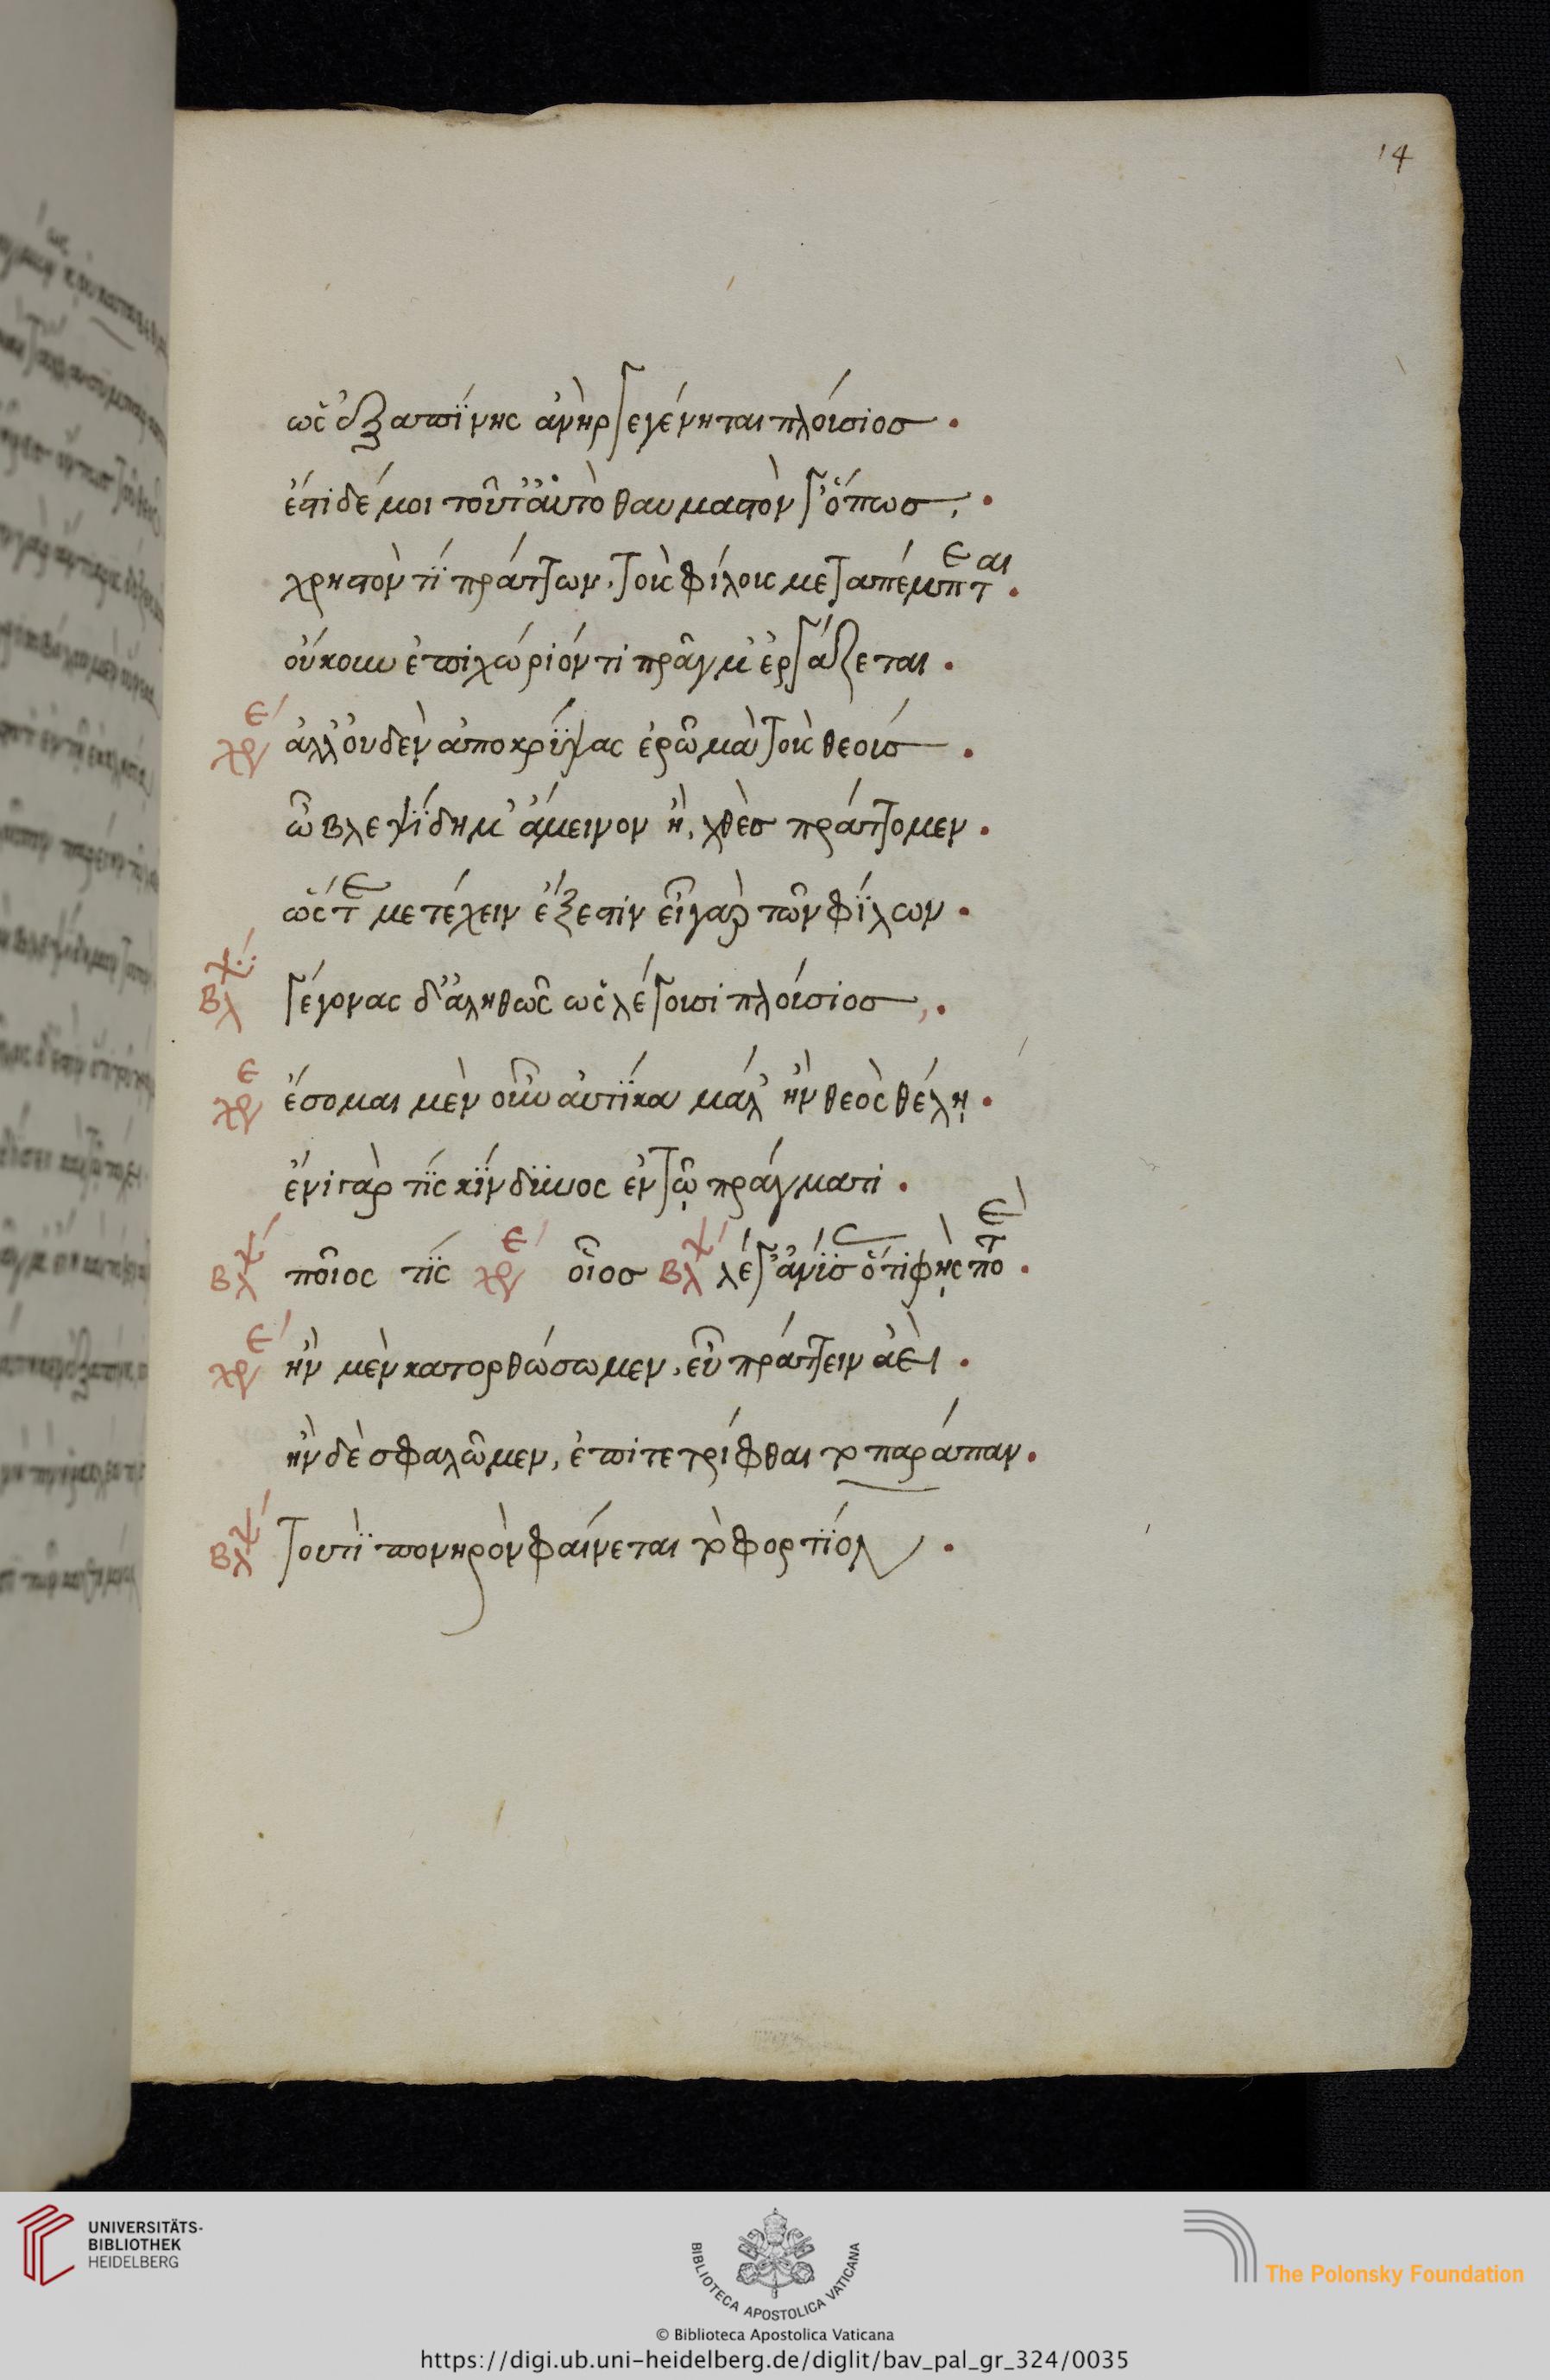 14
ὡς ἐξαπΐνης ἀνὴρ γεγένηται πλούσιοσ.
ἔστι δέ μοι τοῦτ' αὐτὸ θαυμαστὸν γ' ὅπωσ,.
χρηστόν τΐ πράττων, τοὺς φίλους μεταπέμπεται.
οὔκουν ἐπιχώριόν τι πρᾶγμ' ἐργάζεται.
χρε ἀλλ' οὐδὲν ἀποκρΰψας ἐρῶ μὰ τοὺς θεούσ.
ὦ βλεψΐδημ' ἄμεινον ἢ, χθὲσ πράττομεν.
ὥστε μετέχειν ἔξεστιν εἶ γὰρ τῶν φΐλων.
βλψ γέγονας δ' ἀληθῶς ὡς λέγουσι πλούσιοσ,.
χρε ἔσομαι μὲν οὖν αὐτΐκα μάλ' ἢν θεὸς θέλῃ.
ἔνι γάρ τΐς κΐνδϋνος ἐν τῷ πράγματι.
βλψ ποῖος τΐς χρε οἷοσ βλψ λέγ' ἀνΰσας ὅτι φῂς ποτε.
χρε ἢν μὲν κατορθώσωμεν, εὖ πράττειν ἀεὶ.
ἢν δὲ σφαλῶμεν, ἐπιτετρίφθαι το παράπαν.
βλψ τουτῒ πονηρὸν φαίνεται τὸ φορτΐον.
UNIVERSITÄTS-
BIBLIOTHEK
HEIDELBERG
BIBLIOTECA APOSTOLICA VATICANA
The Polonsky Foundation
© Biblioteca Apostolica Vaticana
https://digi.ub.uni-heidelberg.de/diglit/bav_pal_gr_324/0035